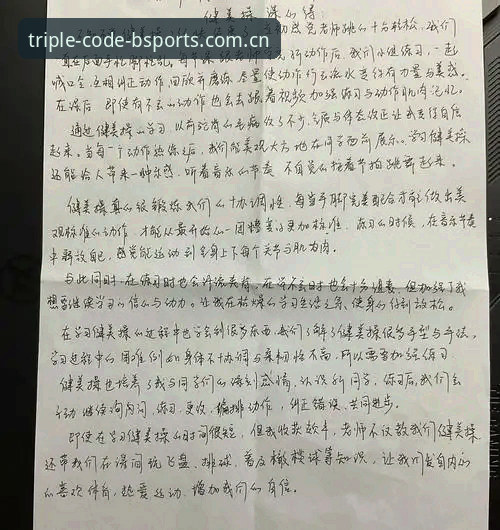 健美操课心得:
triple-code-bsports.com.cn
真正后面手忙脚乱, 每节课跟老师学完新动作后, 我们小组练习, 一起
喊口令, 互相纠正动作, 回顾并磨练, 尽量使动作行云流水变得有力量与美感。
在课后, 即使有不会的动作也会去跟着视频加强练习与动作肌肉记忆。
通过健美操的学习, 以前驼背的毛病改了不少, 气质与体态改正让我变得自信
起来。当每一个动作熟练之后, 我们能美观大方地在同学面前展示。学习健美操
还能给人带来一种乐感, 听着音乐的节奏, 不自觉的按着节拍跳舞起来。
健美操真的很锻炼我们的协调性, 每当手脚完美配合才能做出美
观标准的动作, 才能从最开始的一团糟变得更加标准。练习的时候, 在音乐节奏
中释放自己, 感觉能运动到全身上下每个关节与肌肉。
与此同时, 在练习时也会浮流夹背, 在学不会时也会十分沮丧, 但加强了我
想要继续学习的信心与动力。让我在枯燥的学习生活之余, 使身心得到放松。
在学习健美操的过程中也学会到很多东西, 我们了解了健美操很多手型与手法,
学习过程中的困难例如身体不协调与柔韧性不高, 所以需要加强练习。
健美操也培养了我与同学们的深刻感情, 认识新同学, 练习后, 我们会
主动继续询问, 练习, 更改, 编排动作, 纠正错误, 共同进步。
即使在学习健美操的时间很短, 但我收获颇丰, 老师不仅教我们健美操
还带我们在课间玩飞盘、排球、普及橄榄球等知识, 让我们发自内心
的喜欢体育, 热爱运动, 增加我们的自信。